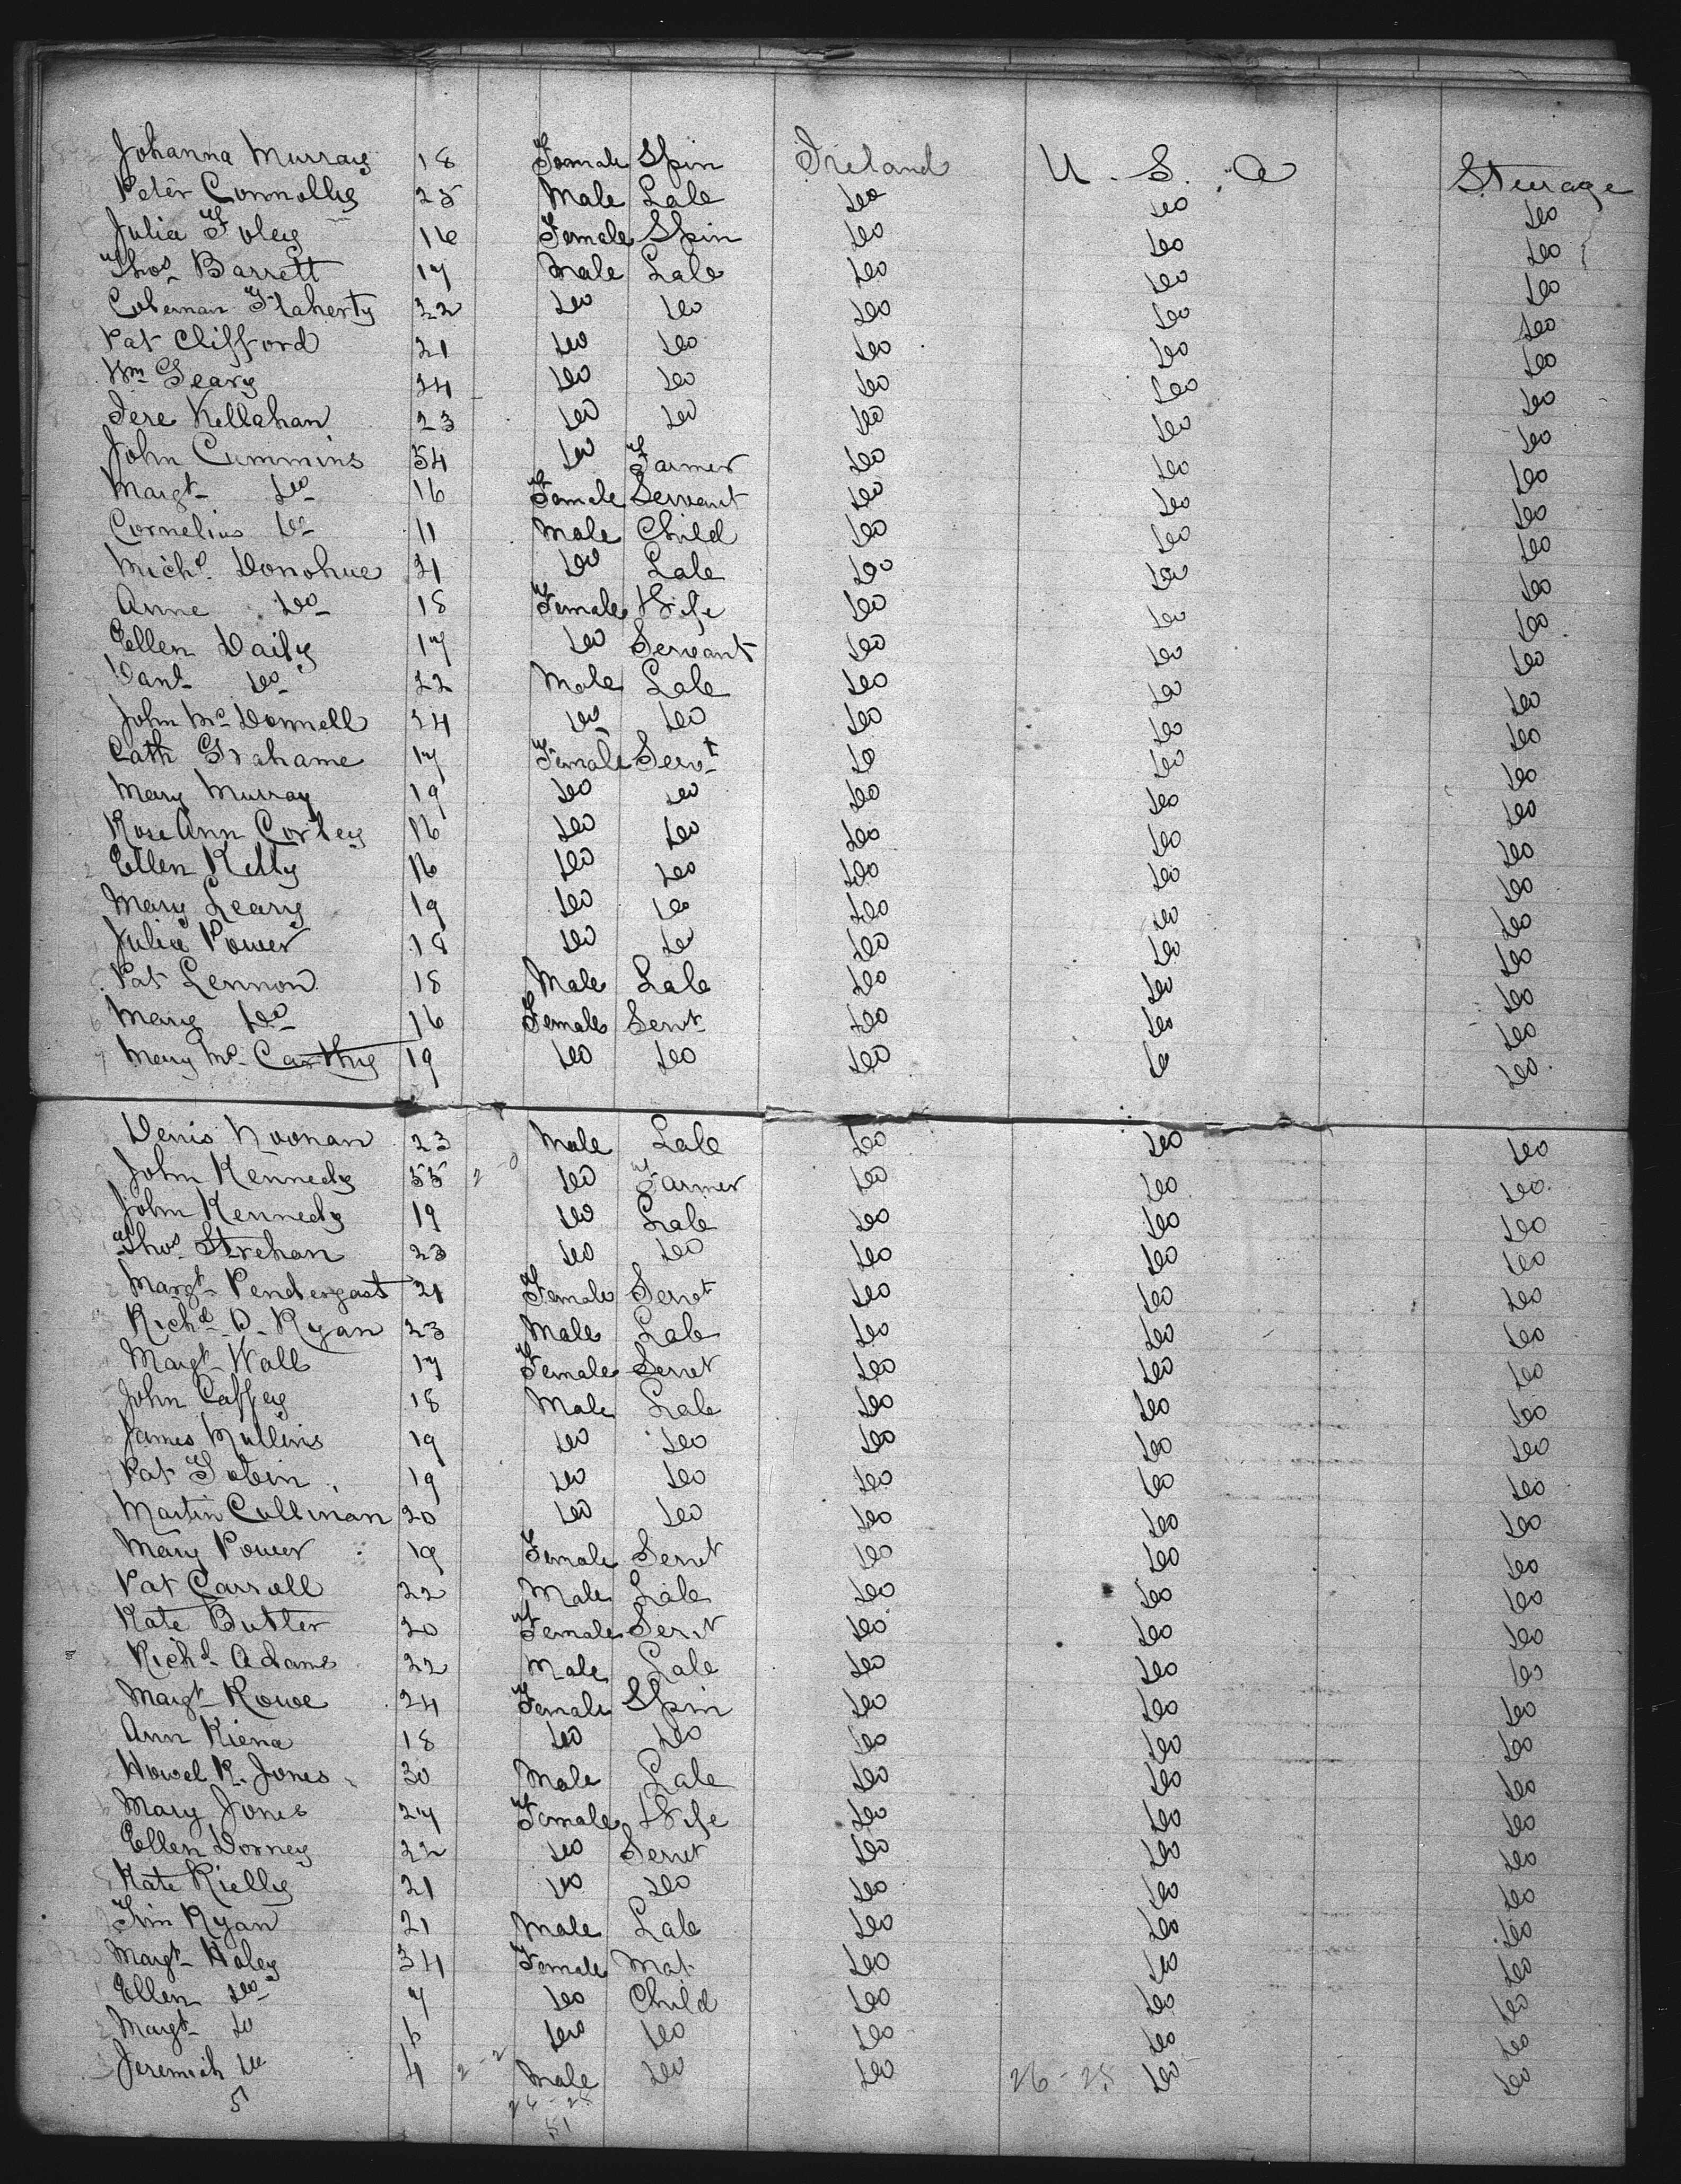 Johanna Murray 18 Female Spin Ireland U. S. a Steerage
Peter Connolly 25 Male Lab Do Do Do
Julia Foley 16 Female Spin Do Do Do
Thos Barrett 17 Male Lab Do Do Do
Coleman Flaherty 22 Do Do Do Do Do
Pat Clifford 21 Do Do Do Do Do
Wm Geary 24 Do Do Do Do Do
Jere Kellahan 23 Do Do Do Do Do
John Cummins 54 Do Farmer Do Do Do
Margt Do 16 Female Servant Do Do Do
Cornelius Do 11 Male Child Do Do Do
Michl Donohue 21 Do Lab Do Do Do
Anne Do 18 Female Wife Do Do Do
Ellen Daily 17 Do Servant Do Do Do
Danl Do 22 Male Lab Do Do Do
John McDonnell 24 Do Do Do Do Do
Cath Grahame 17 Female Servt Do Do Do
Mary Murray 19 Do Do Do Do Do
Rose Ann Corley 16 Do Do Do Do Do
Ellen Kelly 16 Do Do Do Do Do
Mary Leary 19 Do Do Do Do Do
Julia Power 18 Do Do Do Do Do
Pat Lennon 18 Male Lab Do Do Do
Mary Do 16 Female Servt Do Do Do
Mary McCarthy 19 Do Do Do Do Do
Denis Noonan 23 Male Lab Do Do Do
John Kennedy 55 Do Farmer Do Do Do
John Kennedy 19 Do Lab Do Do Do
Thos Strehan 23 Do Do Do Do Do
Margt Pendergast 21 Female Servt Do Do Do
Richd D. Ryan 23 Male Lab Do Do Do
Margt Wall 17 Female Servt Do Do Do
John Caffey 18 Male Lab Do Do Do
James Mullins 19 Do Do Do Do Do
Pat Tobin 19 Do Do Do Do Do
Martin Cullinan 20 Do Do Do Do Do
Mary Power 19 Female Servt Do Do Do
Pat Carroll 22 Male Lab Do Do Do
Kate Butler 20 Female Servt Do Do Do
Richd Adams 22 Male Lab Do Do Do
Margt Rowe 24 Female Spin Do Do Do
Ann Kiena 18 Do Do Do Do Do
Howel R. Jones 30 Male Lab Do Do Do
Mary Jones 27 Female Wife Do Do Do
Ellen Dorney 22 Do Servt Do Do Do
Kate Rielly 21 Do Do Do Do Do
Tim Ryan 21 Male Lab Do Do Do
Margt Haley 34 Female Mat Do Do Do
Ellen Do 7 Do Child Do Do Do
Margt Do 6 Do Do Do Do Do
Jeremiah Do 4 2-2 Male Do Do 26-25 Do Do
51 26-25
51